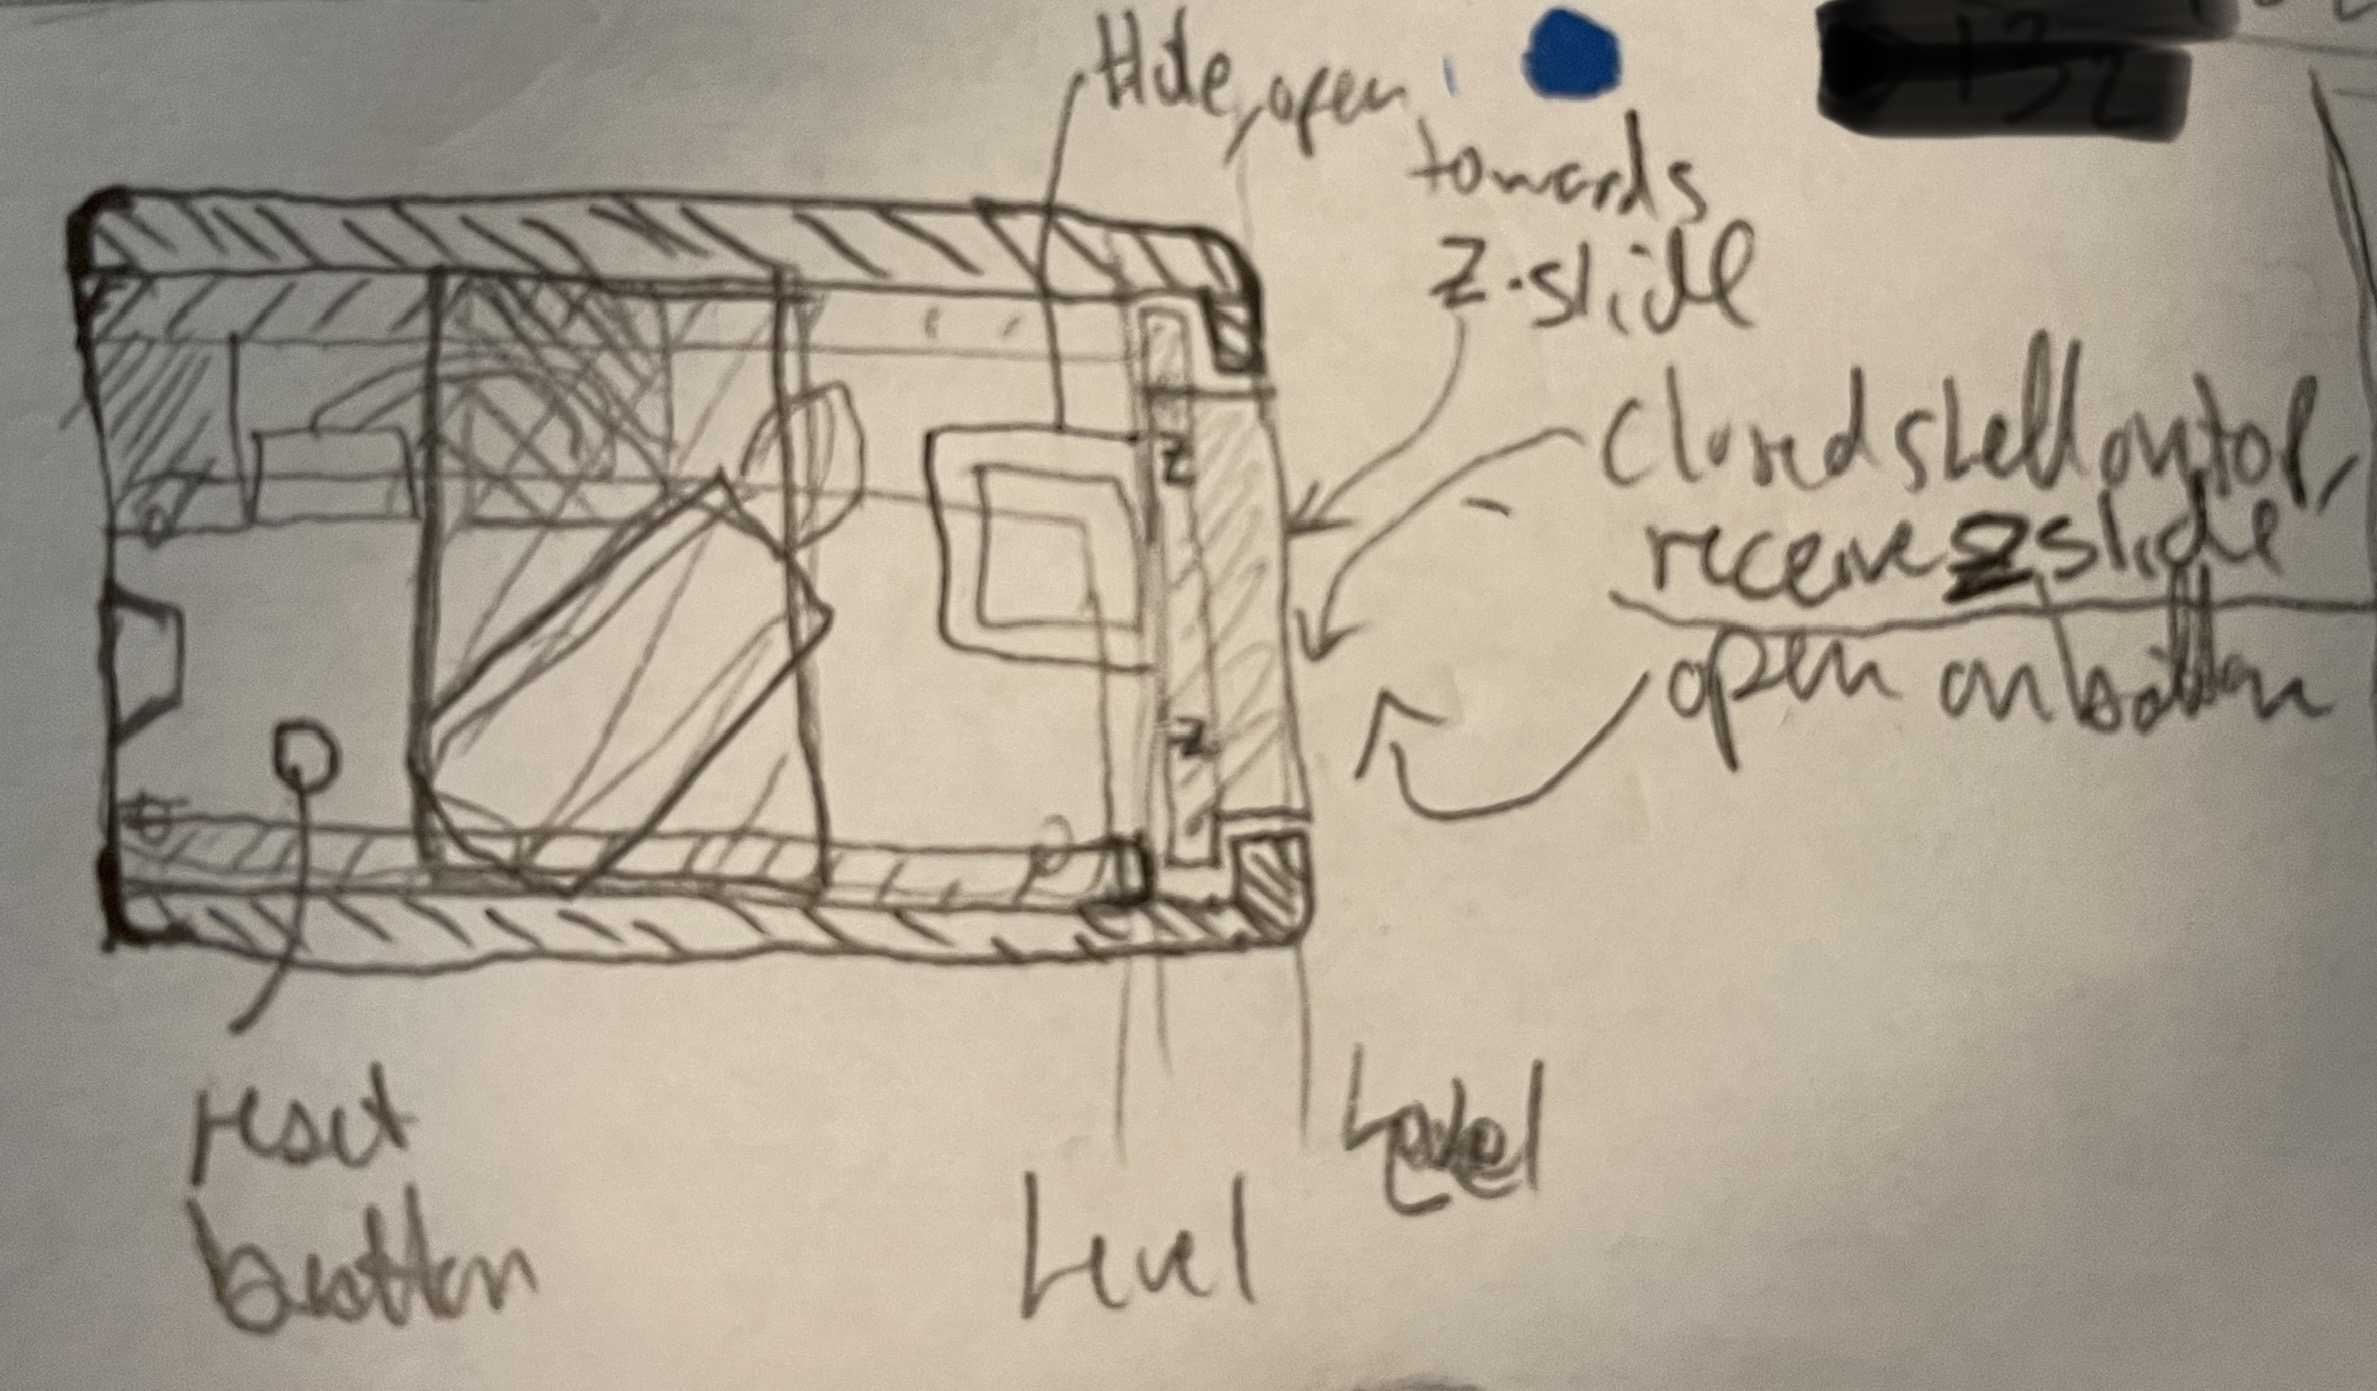 Hole, open
towards
Z-slide
Closed shell on top,
receive Z slide
open on bottom
Z
Z
reset
button
Level
Label